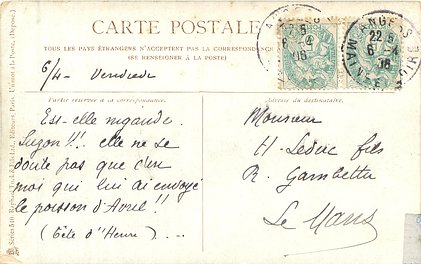 CARTE POSTALE
TOUS LES PAYS ÉTRANGERS N'ACCEPTENT PAS LA CORRESPONDANCE
(SE RENSEIGNER À LA POSTE)
ANGERS
22
6 - 4
06
6/4 - Vendredi
Partie réservée à la correspondance.
Adresse du destinataire.
Est-elle nigaude
Suzon !!! elle ne se
doute pas que c'est
moi qui lui ai envoyé
le poisson d'Avril !!
(Tête d'Heure) . . . .
Monsieur
H. Leduc fils
R. Gambetta
Le Mans